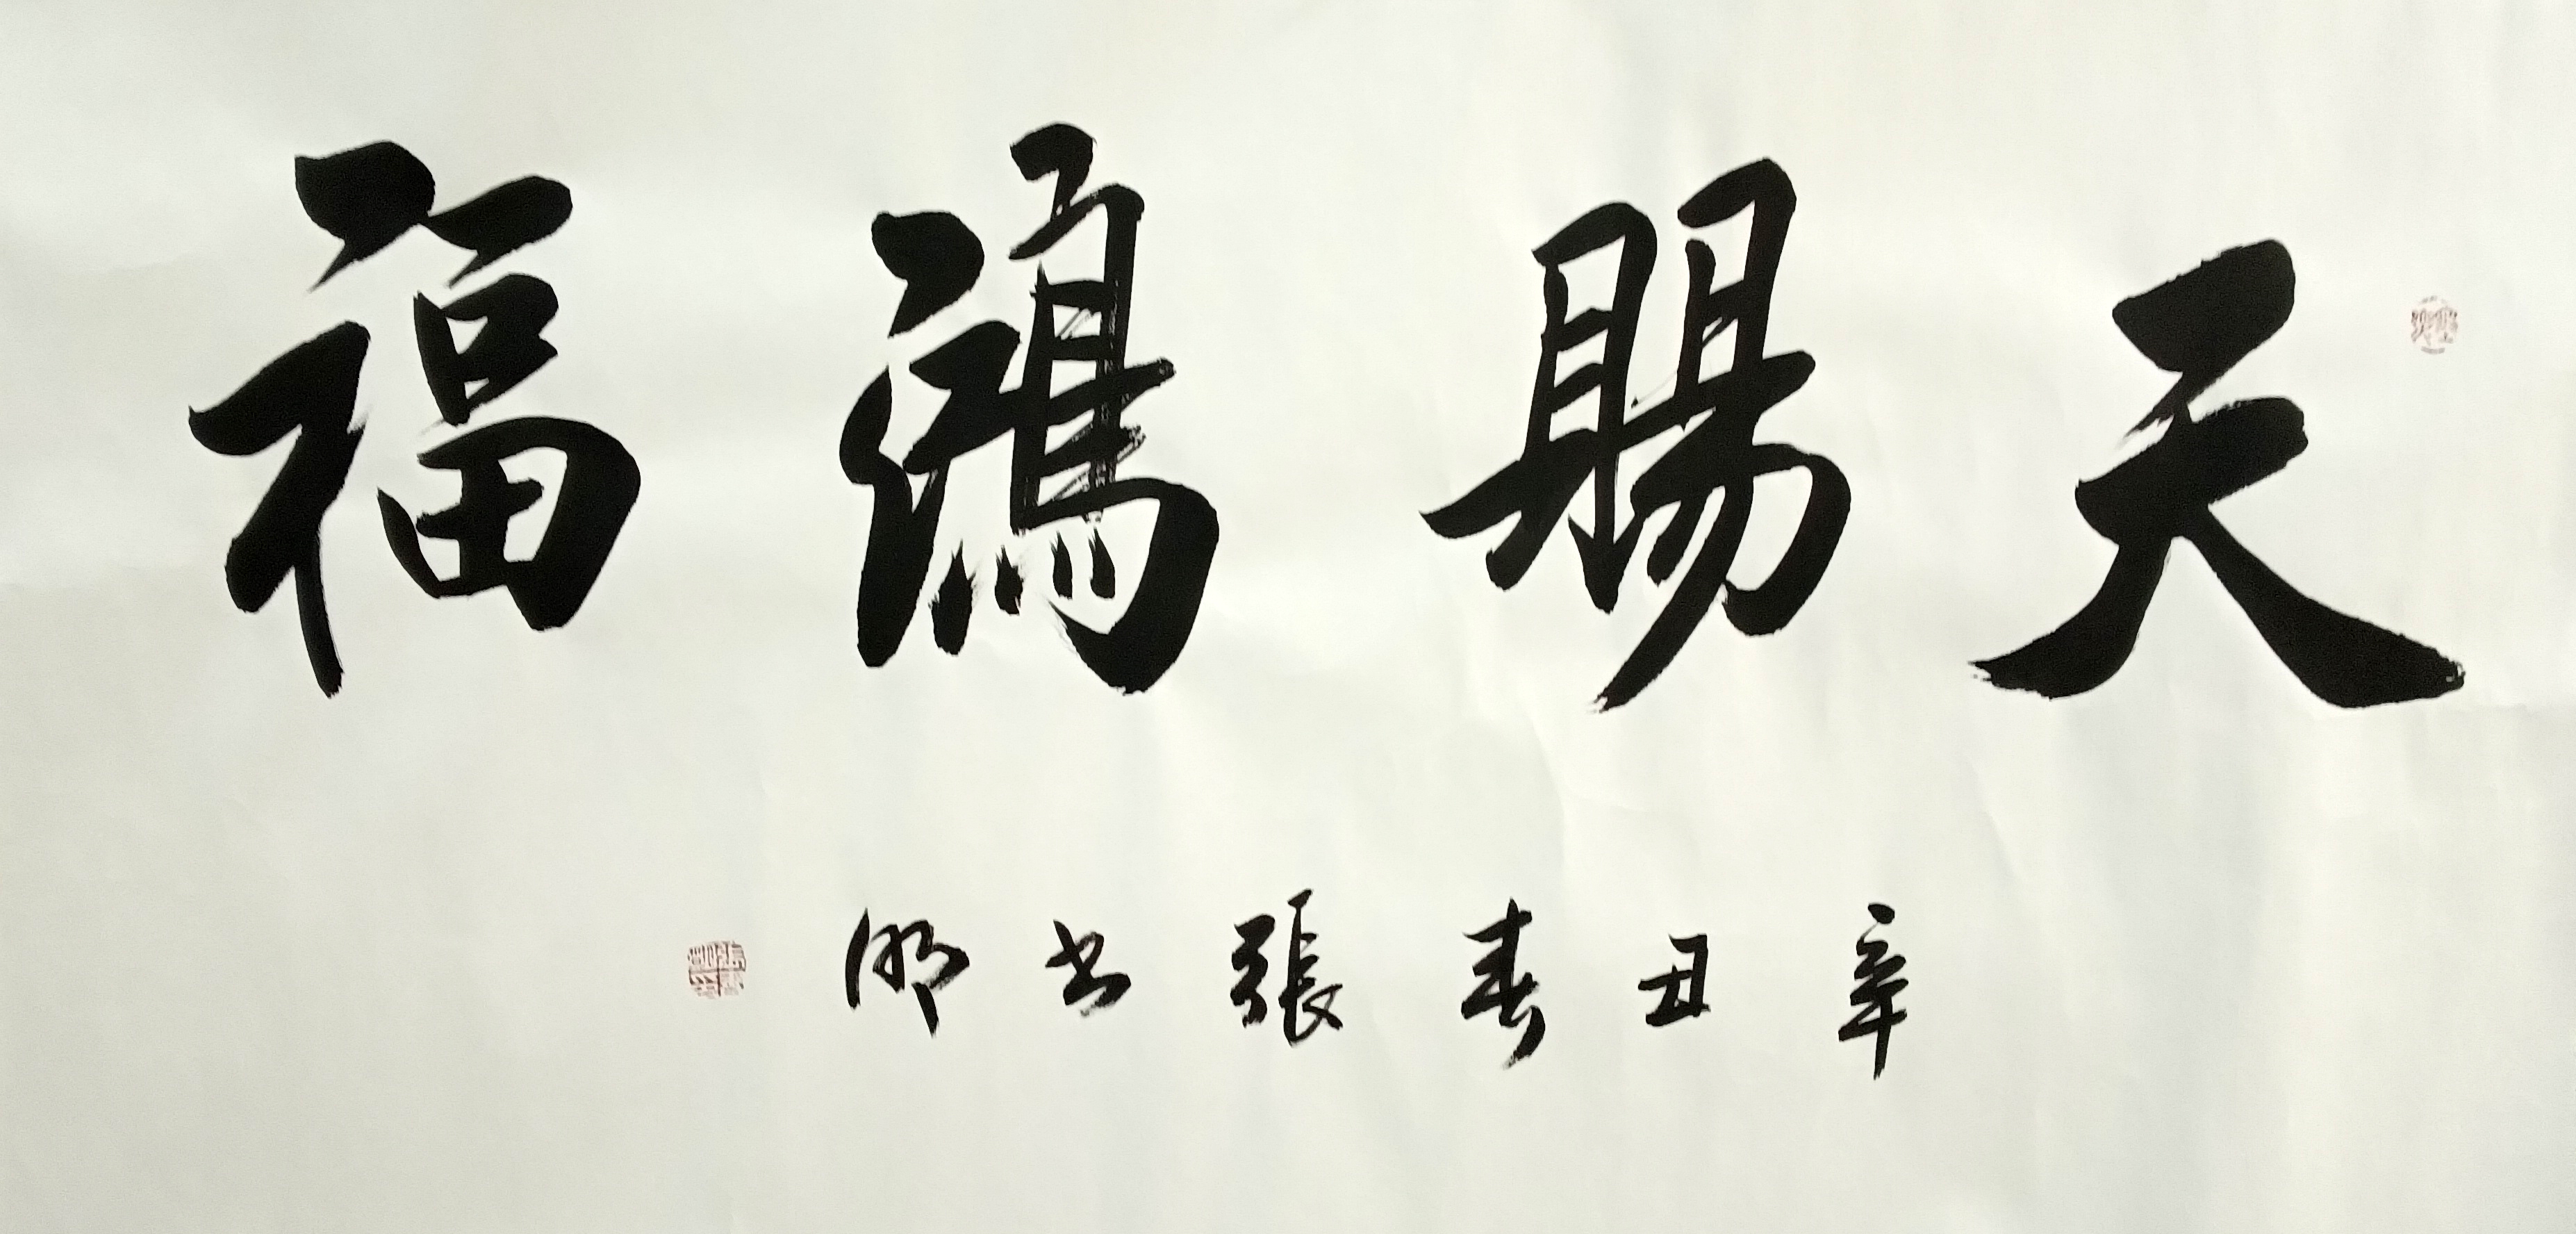 天賜鴻福
辛丑春張书明